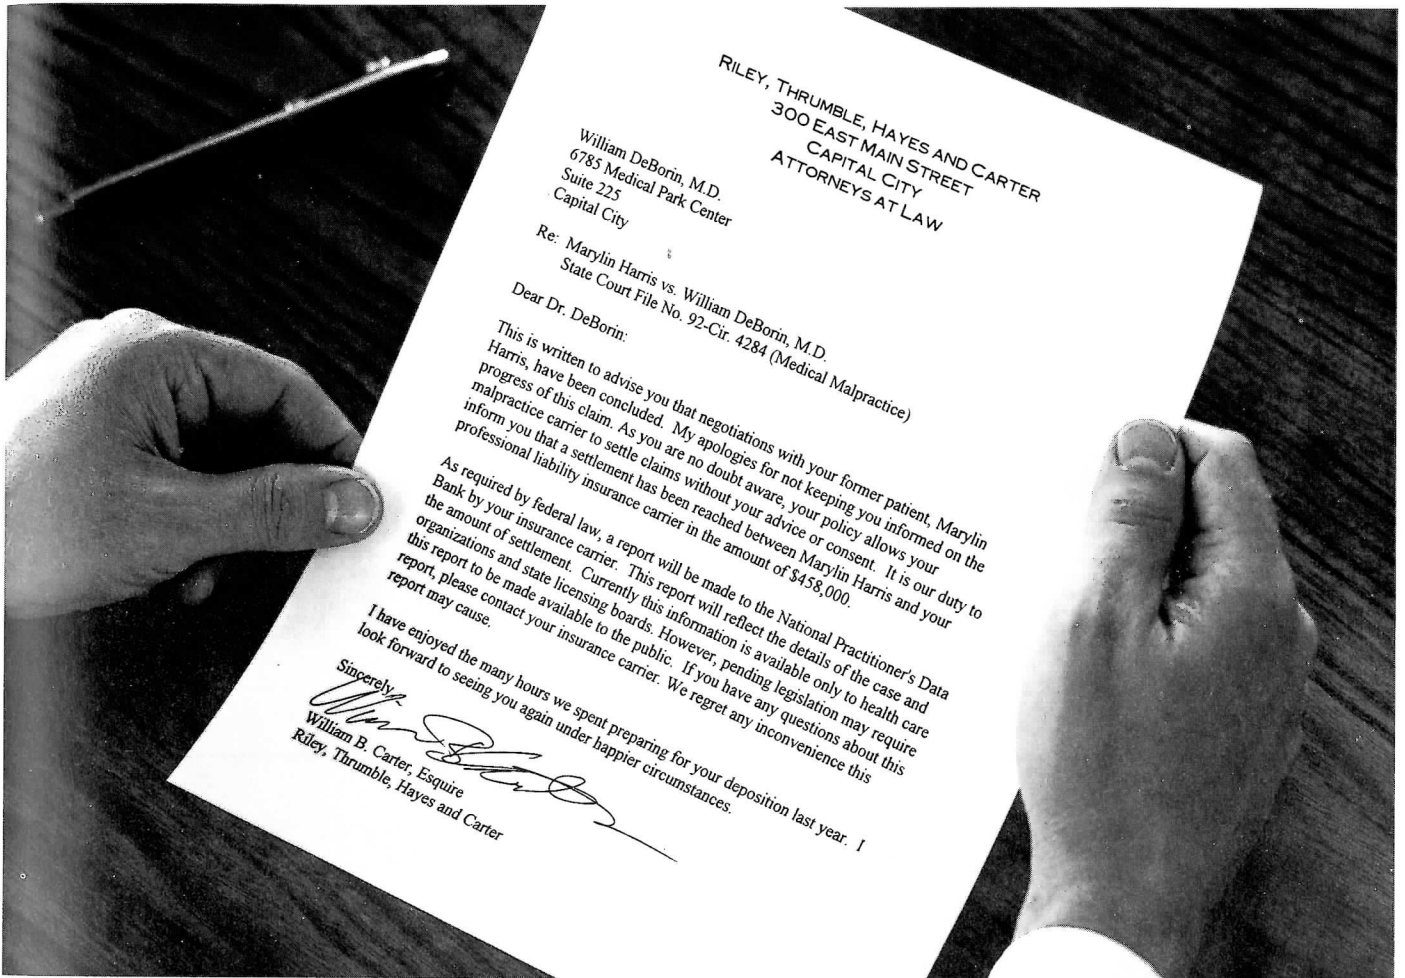 RILEY, THRUMBLE, HAYES AND CARTER
300 EAST MAIN STREET
CAPITAL CITY
ATTORNEYS AT LAW
William DeBorin, M.D.
6785 Medical Park Center
Suite 225
Capital City
Re: Marylin Harris vs. William DeBorin, M.D.
State Court File No. 92-Cir. 4284 (Medical Malpractice)
Dear Dr. DeBorin:
This is written to advise you that negotiations with your former patient, Marylin
Harris, have been concluded. My apologies for not keeping you informed on the
progress of this claim. As you are no doubt aware, your policy allows your
malpractice carrier to settle claims without your advice or consent. It is our duty to
inform you that a settlement has been reached between Marylin Harris and your
professional liability insurance carrier in the amount of $458,000.
As required by federal law, a report will be made to the National Practitioner's Data
Bank by your insurance carrier. This report will reflect the details of the case and
the amount of settlement. Currently this information is available only to health care
organizations and state licensing boards. However, pending legislation may require
this report to be made available to the public. If you have any questions about this
report, please contact your insurance carrier. We regret any inconvenience this
report may cause.
I have enjoyed the many hours we spent preparing for your deposition last year. I
look forward to seeing you again under happier circumstances.
Sincerely,
William B. Carter, Esquire
Riley, Thrumble, Hayes and Carter